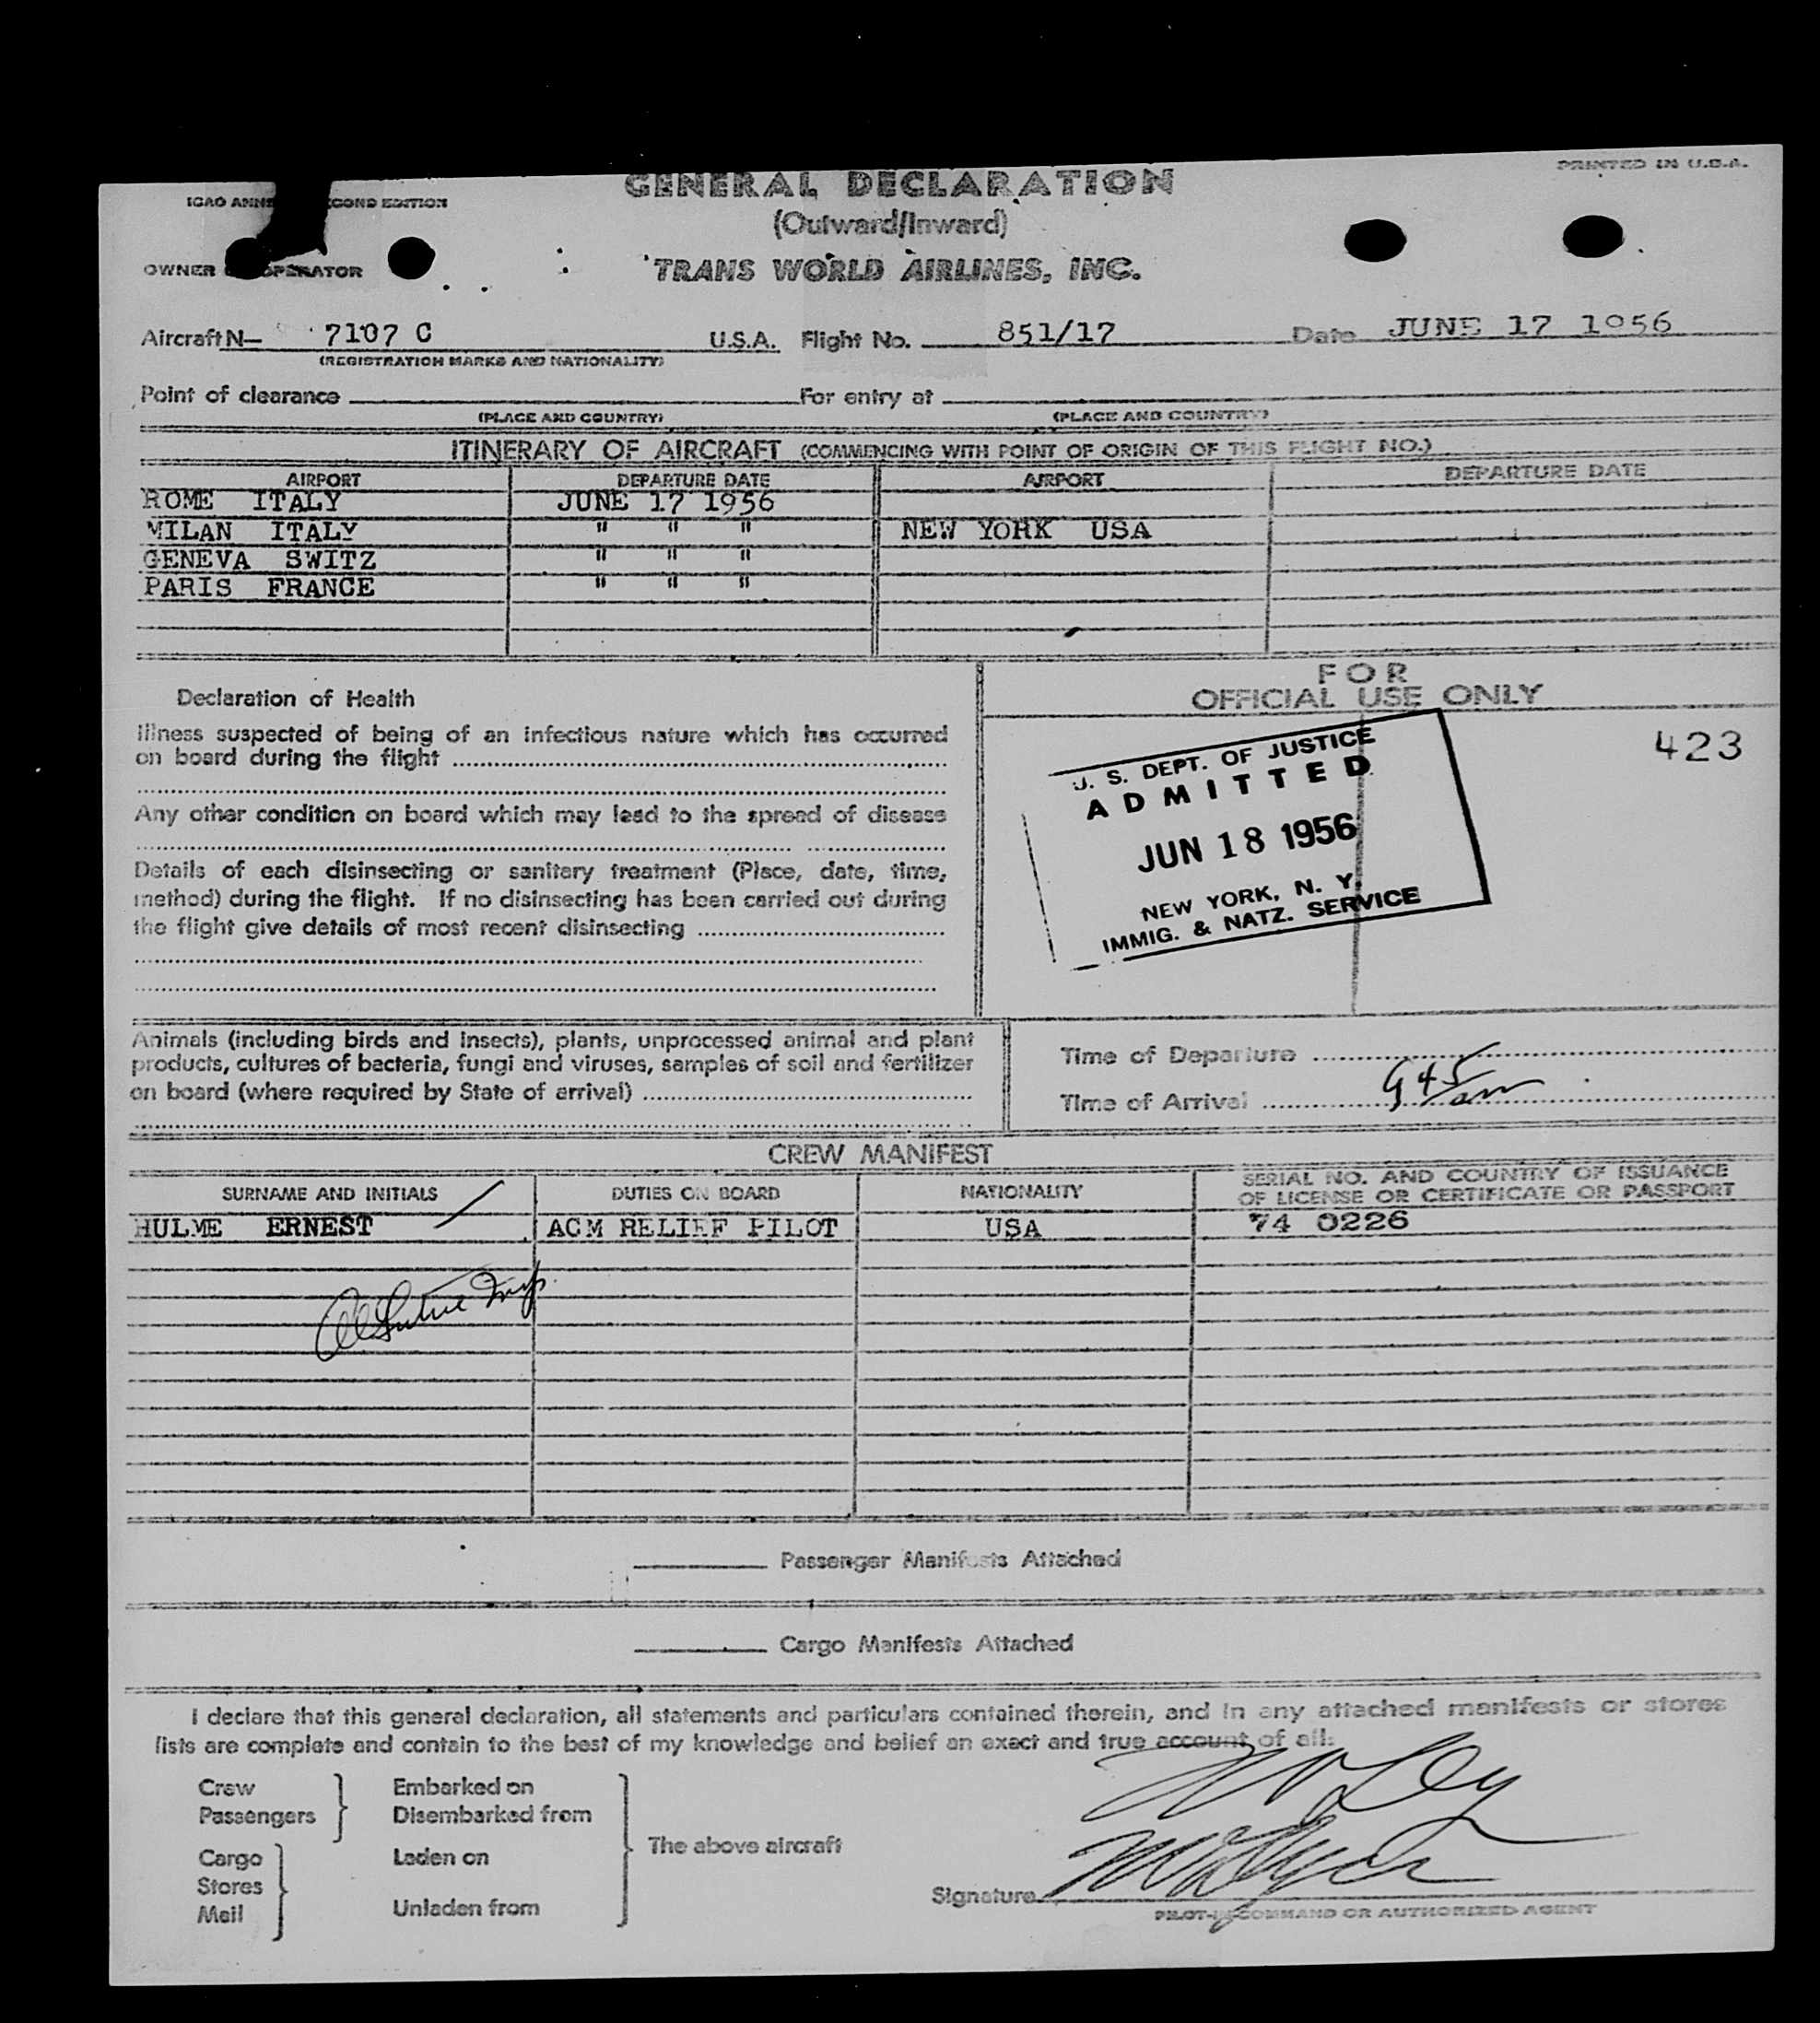 PRINTED IN U.S.A.
GENERAL DECLARATION
ICAO ANNE COND EDITION
(Outward/Inward)
OWNER OPERATOR
TRANS WORLD AIRLINES, INC.
Aircraft N— 7107 C U.S.A. Flight No. 851/17 Date JUNE 17 1956
(REGISTRATION MARKS AND NATIONALITY)
Point of clearance For entry at
(PLACE AND COUNTRY) (PLACE AND COUNTRY)
ITINERARY OF AIRCRAFT (COMMENCING WITH POINT OF ORIGIN OF THIS FLIGHT NO.)
AIRPORT DEPARTURE DATE AIRPORT DEPARTURE DATE
ROME ITALY JUNE 17 1956
MILAN ITALY " " " NEW YORK USA
GENEVA SWITZ " " "
PARIS FRANCE " " "
Declaration of Health
Illness suspected of being of an infectious nature which has occurred
on board during the flight
Any other condition on board which may lead to the spread of disease
Details of each disinsecting or sanitary treatment (Place, date, time,
method) during the flight. If no disinsecting has been carried out during
the flight give details of most recent disinsecting
FOR
OFFICIAL USE ONLY
423
U. S. DEPT. OF JUSTICE
ADMITTED
JUN 18 1956
NEW YORK, N. Y.
IMMIG. & NATZ. SERVICE
Animals (including birds and insects), plants, unprocessed animal and plant
products, cultures of bacteria, fungi and viruses, samples of soil and fertilizer
on board (where required by State of arrival)
Time of Departure
Time of Arrival 945 am
CREW MANIFEST
SURNAME AND INITIALS DUTIES ON BOARD NATIONALITY SERIAL NO. AND COUNTRY OF ISSUANCE
OF LICENSE OR CERTIFICATE OR PASSPORT
HULME ERNEST ACM RELIEF PILOT USA 74 0226
Passenger Manifests Attached
Cargo Manifests Attached
I declare that this general declaration, all statements and particulars contained therein, and in any attached manifests or stores
lists are complete and contain to the best of my knowledge and belief an exact and true account of all:
Crew Embarked on
Passengers Disembarked from
The above aircraft
Cargo Laden on
Stores
Mail Unladen from
Signature
PILOT-IN-COMMAND OR AUTHORIZED AGENT